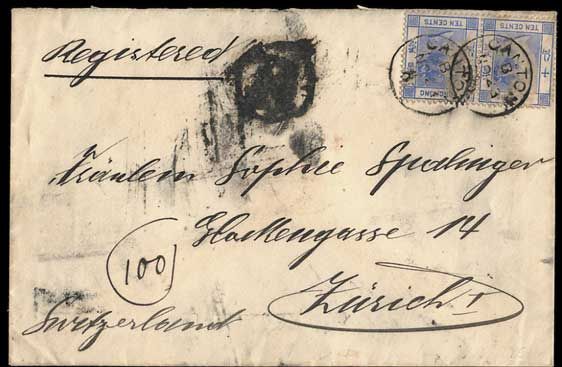 Registered
TEN CENTS
TEN CENTS
CANTON
CANTON
Fräulein Sophie Spalinger
Glockengasse 14
100
Zürich I
Switzerland